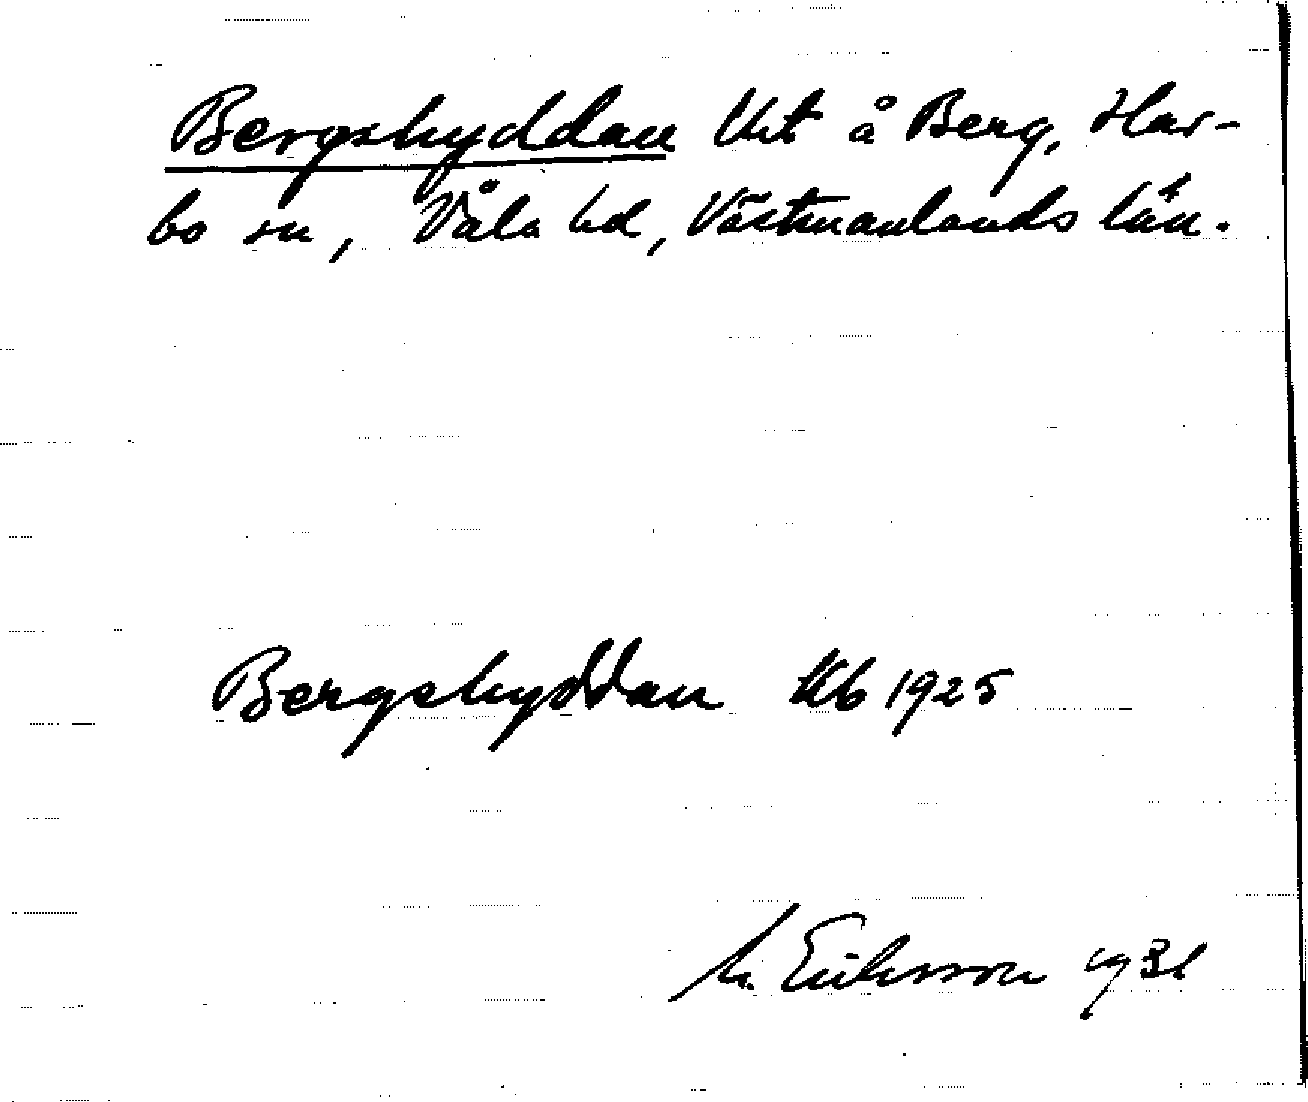 Bergshyddan Ukt å Berg, Har-
bo sn, Våla hd, Västmanlands län.
Bergshyddan Kb 1925
M. Eriksson 1931